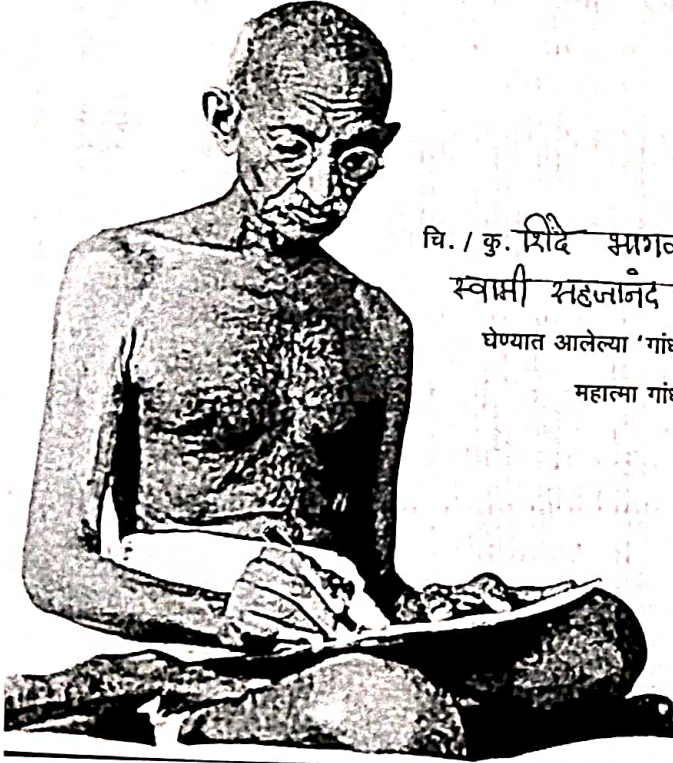 चि. / कु. शिंदे भागव
स्वामी सहजानंद
घेण्यात आलेल्या 'गांध
महात्मा गांध